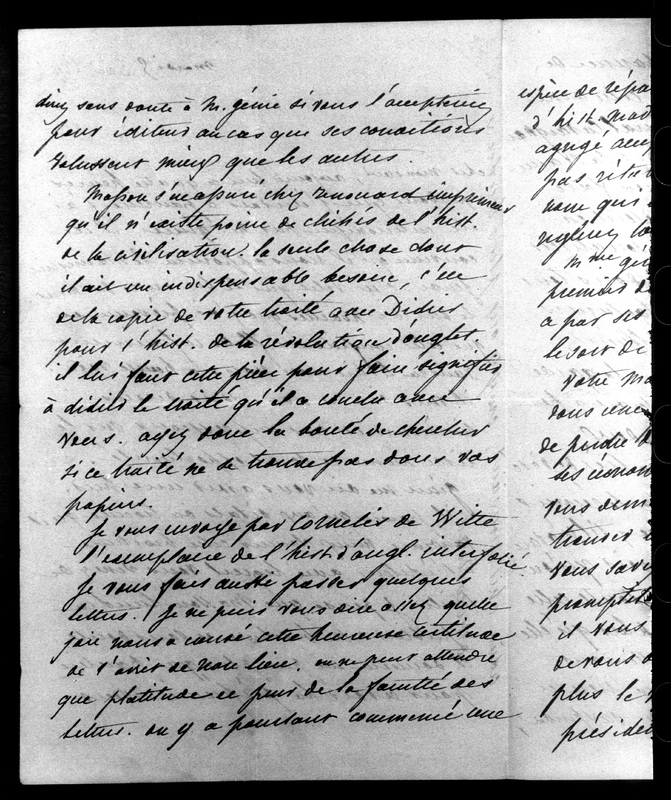 diriez sans doute à M. génie si vous l'accepteriez
pour éditeur au cas que ses conditions
valussent mieux que les autres.
Masson s'est assuré chez renouard imprimeur
qu'il n'existe point de clichés de l'hist.
de la civilisation. la seule chose dont
il ait un indispensable besoin, c'est
de la copie de votre traité avec Didier
pour l'hist. de la révolution d'anglet.
il lui faut cette pièce pour faire signifier
à didier le traité qu'il a conclu avec
vous. ayez donc la bonté de chercher
si ce traité ne se trouve pas dans vos
papiers.
Je vous envoye par Cornelis de Witt
l'exemplaire de l'hist. d'angl. interfolié.
Je vous fais aussi passer quelques
lettres. Je ne puis vous dire assez quelle
joie nous a causé cette heureuse certitude
de l'arrêt de non lieu. on ne peut attendre
que platitude et peur de la faculté des
lettres. on y a pourtant commencé une
espèce de répa
d'hist. mod
agrégé
pas
nom qui
M. me gén
premier d
a par ses
le sort d
votre
vous
de perdre
ses
vous dem
trouver
vous savez
promptit
il vous
de vous
plus le
présiden